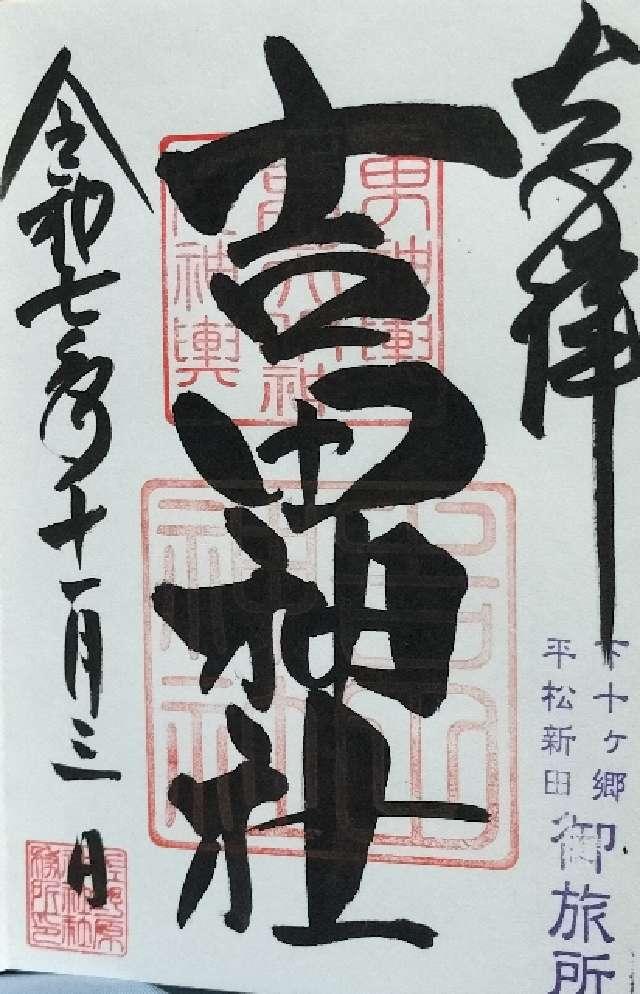 奉拝
下十ヶ郷
平松新田
御旅所
吉田神社
男神輿
神輿
令和七年十一月三日